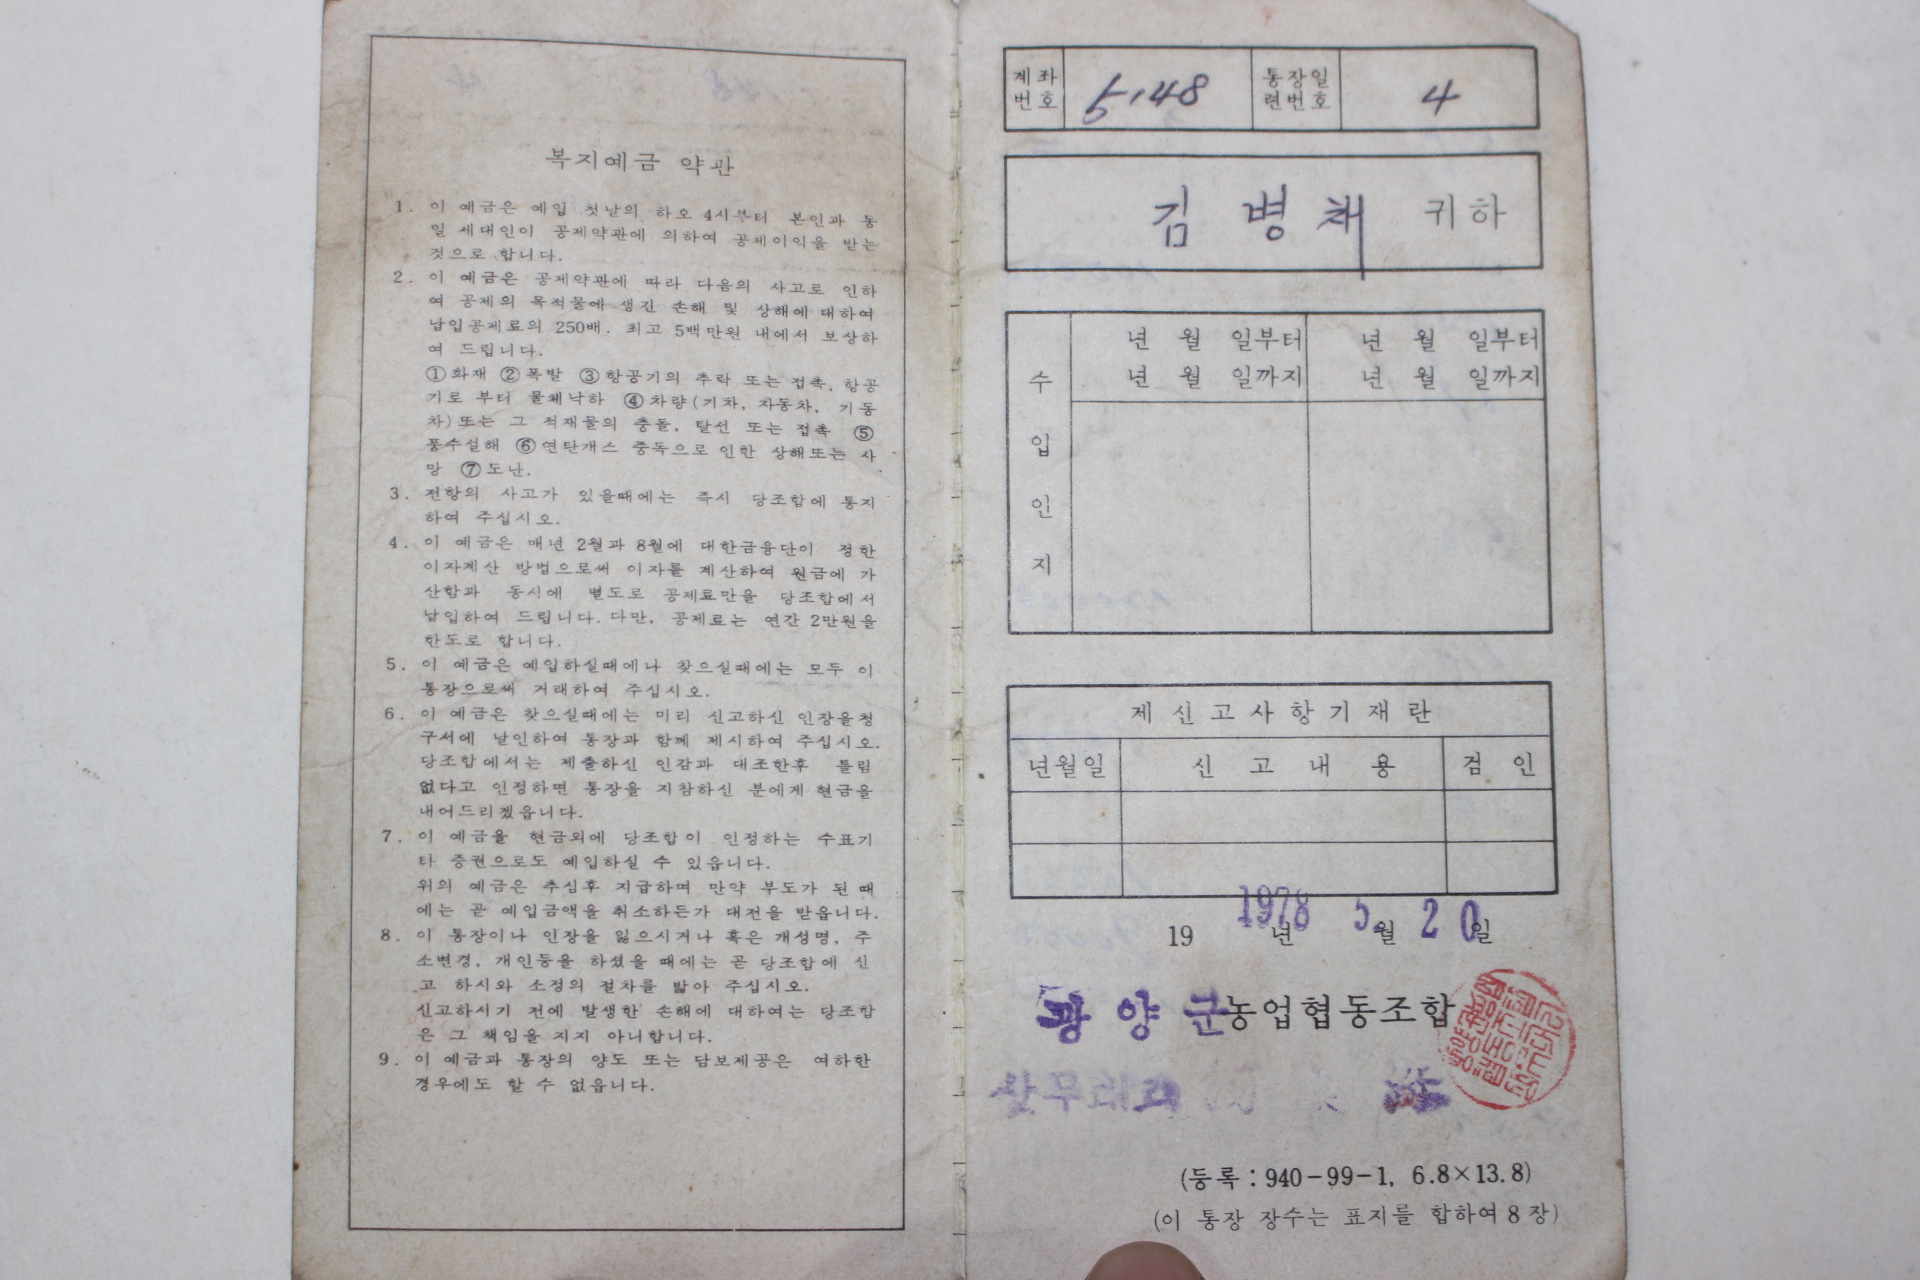 복지예금 약관
1. 이 예금은 예입 첫날의 하오 4시부터 본인과 동
일 세대인이 공제약관에 의하여 공제이익을 받는
것으로 합니다.
2. 이 예금은 공제약관에 따라 다음의 사고로 인하
여 공제의 목적물에 생긴 손해 및 상해에 대하여
납입공제료의 250배. 최고 5백만원 내에서 보상하
여 드립니다.
①화재 ②폭발 ③항공기의 추락 또는 접촉, 항공
기로 부터 물체낙하 ④차량(기차, 자동차, 기동
차) 또는 그 적재물의 충돌, 탈선 또는 접촉 ⑤
풍수설해 ⑥연탄개스 중독으로 인한 상해또는 사
망 ⑦도난.
3. 전항의 사고가 있을때에는 즉시 당조합에 통지
하여 주십시오.
4. 이 예금은 매년 2월과 8월에 대한금융단이 정한
이자계산 방법으로써 이자를 계산하여 원금에 가
산함과 동시에 별도로 공제료만을 당조합에서
납입하여 드립니다. 다만, 공제료는 연간 2만원을
한도로 합니다.
5. 이 예금은 예입하실때에나 찾으실때에는 모두 이
통장으로써 거래하여 주십시오.
6. 이 예금은 찾으실때에는 미리 신고하신 인장을청
구서에 날인하여 통장과 함께 제시하여 주십시오.
당조합에서는 제출하신 인감과 대조한후 틀림
없다고 인정하면 통장을 지참하신 분에게 현금을
내어드리겠읍니다.
7. 이 예금을 현금외에 당조합이 인정하는 수표기
타 증권으로도 예입하실 수 있읍니다.
위의 예금은 추심후 지급하며 만약 부도가 된 때
에는 곧 예입금액을 취소하든가 대전을 받읍니다.
8. 이 통장이나 인장을 잃으시거나 혹은 개성명, 주
소변경, 개인등을 하셨을 때에는 곧 당조합에 신
고 하시와 소정의 절차를 밟아 주십시오.
신고하시기 전에 발생한 손해에 대하여는 당조합
은 그 책임을 지지 아니합니다.
9. 이 예금과 통장의 양도 또는 담보제공은 여하한
경우에도 할 수 없읍니다.
계좌번호 5.148 통장일련번호 4
김병채 귀하
수입인지
년 월 일부터 년 월 일부터
년 월 일까지 년 월 일까지
제신고사항기재란
년월일 신고내용 검인
19 1978년 5월 20일
광양군농업협동조합
(등록 : 940-99-1, 6.8×13.8)
(이 통장 장수는 표지를 합하여 8장)